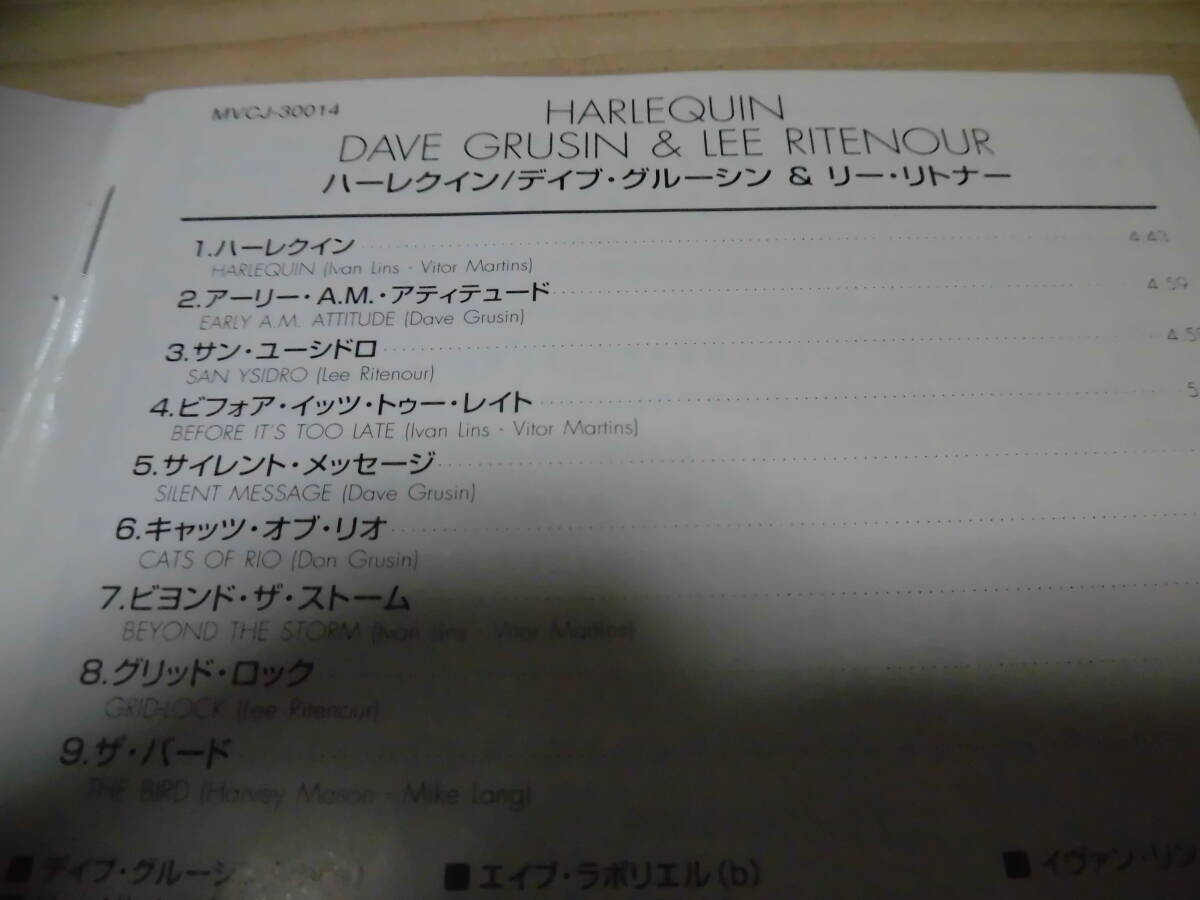 MVCJ-30014
HARLEQUIN
DAVE GRUSIN & LEE RITENOUR
ハーレクイン/デイブ・グルーシン & リー・リトナー
1.ハーレクイン 4:43
HARLEQUIN (Ivan Lins - Vitor Martins)
2.アーリー・A.M.・アティテュード 4:59
EARLY A.M. ATTITUDE (Dave Grusin)
3.サン・ユーシドロ
SAN YSIDRO (Lee Ritenour)
4.ビフォア・イッツ・トゥー・レイト
BEFORE IT'S TOO LATE (Ivan Lins - Vitor Martins)
5.サイレント・メッセージ
SILENT MESSAGE (Dave Grusin)
6.キャッツ・オブ・リオ
CATS OF RIO (Don Grusin)
7.ビヨンド・ザ・ストーム
BEYOND THE STORM (Ivan Lins - Vitor Martins)
8.グリッド・ロック
GRID-LOCK (Lee Ritenour)
9.ザ・バード
THE BIRD (Harvey Mason - Mike Lang)
■デイブ・グルーシ ■エイブ・ラボリエル(b) ■イヴァン・リン